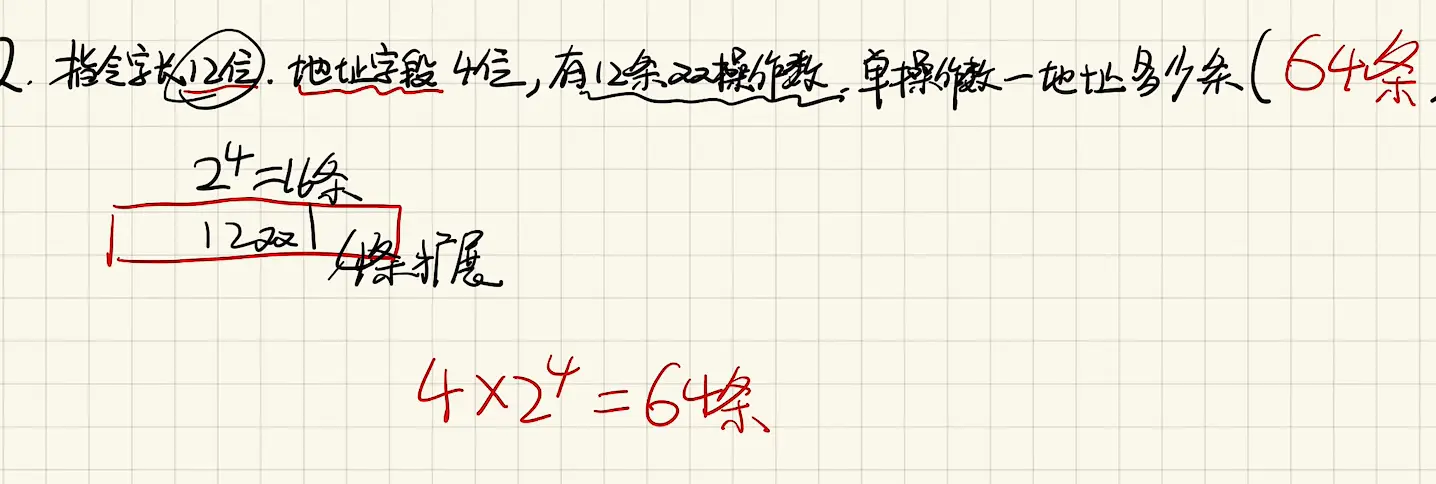 2. 指令字长12位. 地址字段4位, 有12条双操作数. 单操作数一地址多少条( 64条.
2⁴=16条
12双 4条扩展
4×2⁴=64条